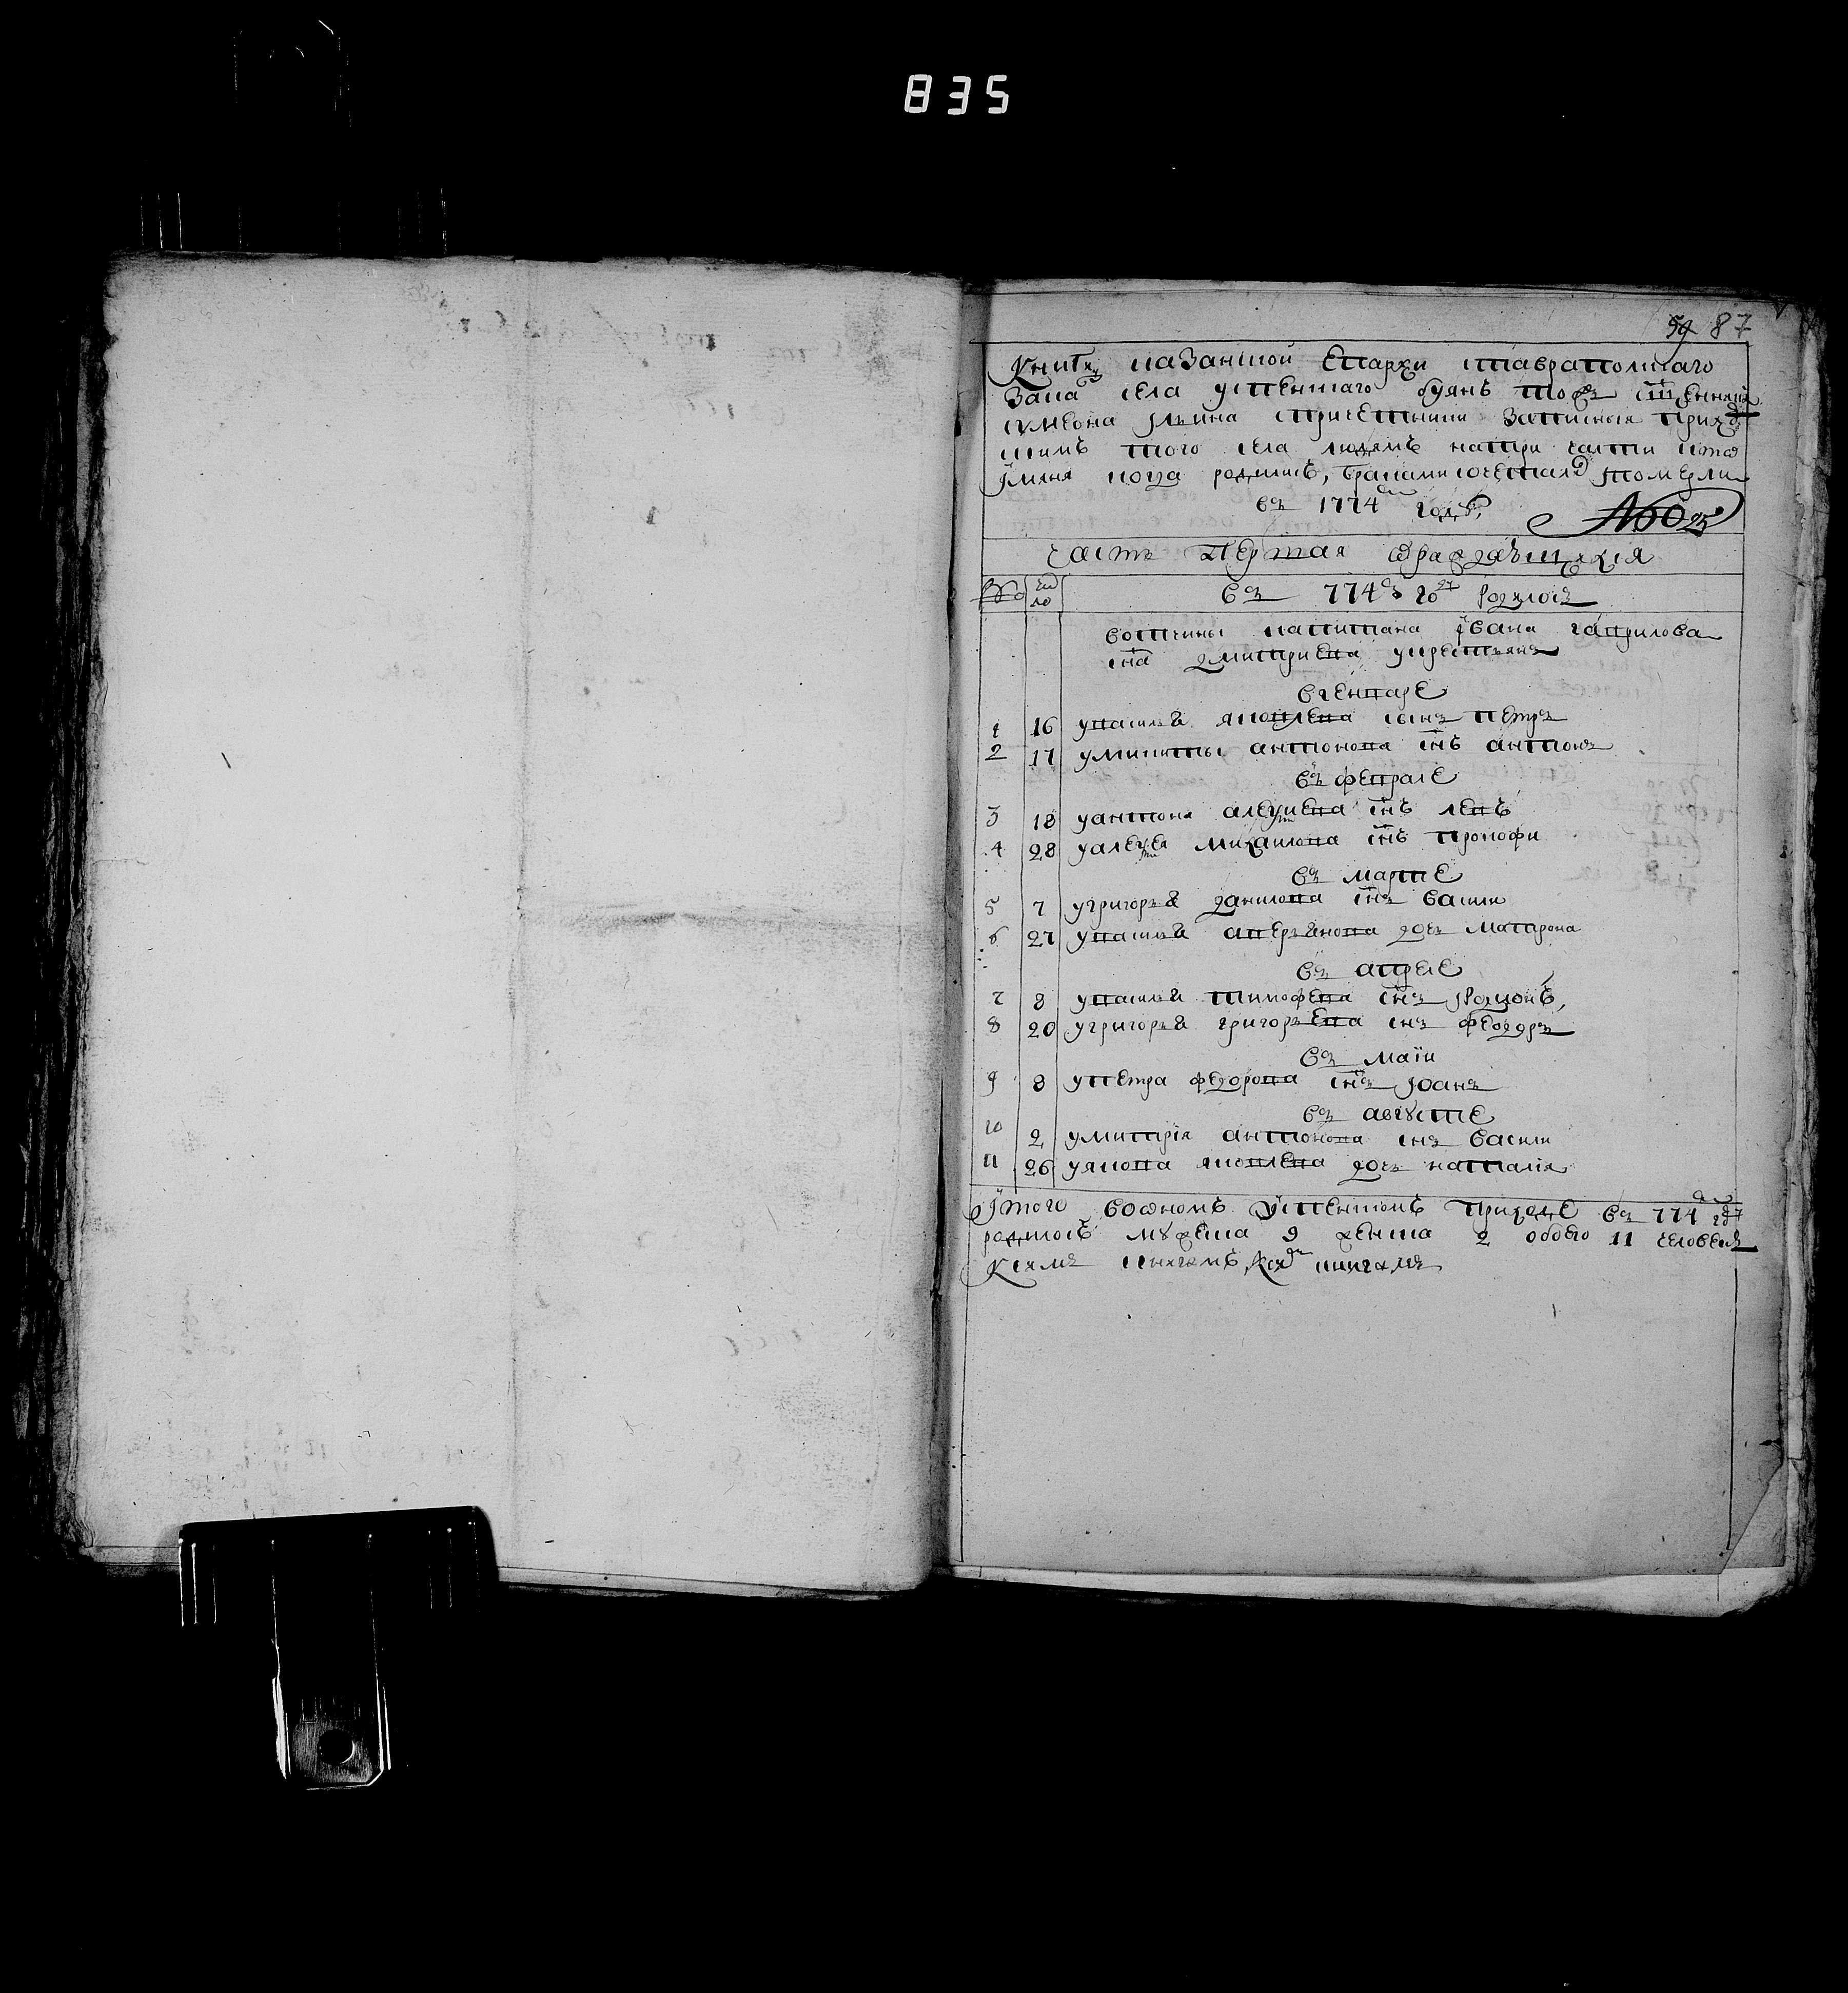 835
59 87
Книга Казанской Епархи ставрапольскаго
Зака села успенскаго буянъ тожъ священника
сумеона Ильина спричетники Записныя приход
скимъ того села людямъ натри части кто
имяна когда родились, браками сочеталис ипомерли
въ 1774м году
Часть первая ораждающихся
№ Чи сло Въ 774м году родилось
вотчины капитана Ивана гаврилова
сна дмитриева укрестьянъ
вгенваре
1 16 увасилья яковлева сынъ петръ
2 17 уникиты антонова снъ антонъ
въ феврале
3 18 уантона алекѣева снъ левъ
4 28 уалекѣя михаилова снъ прокофи
въ марте
5 7 угригорья данилова снъ васили
6 27 увасилья аверьянова дочь матрона
въ апреле
7 8 увасилья тимофева снъ родионъ,
8 20 угригорья григорьева снъ феодоръ
въ маіи
9 8 упетра федорова снъ Иоанъ
въ августе
10 2 умитрія антонова снъ васили
11 26 уякова яковлева дочь наталія
Итого воономъ успенскомъ приходе въ 774м году
родилось мужеска 9 женска 2 обоего 11 человекъ
Ксимъ книгамъ